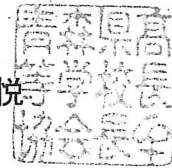 悦
青森県高
等学校長
協会長印